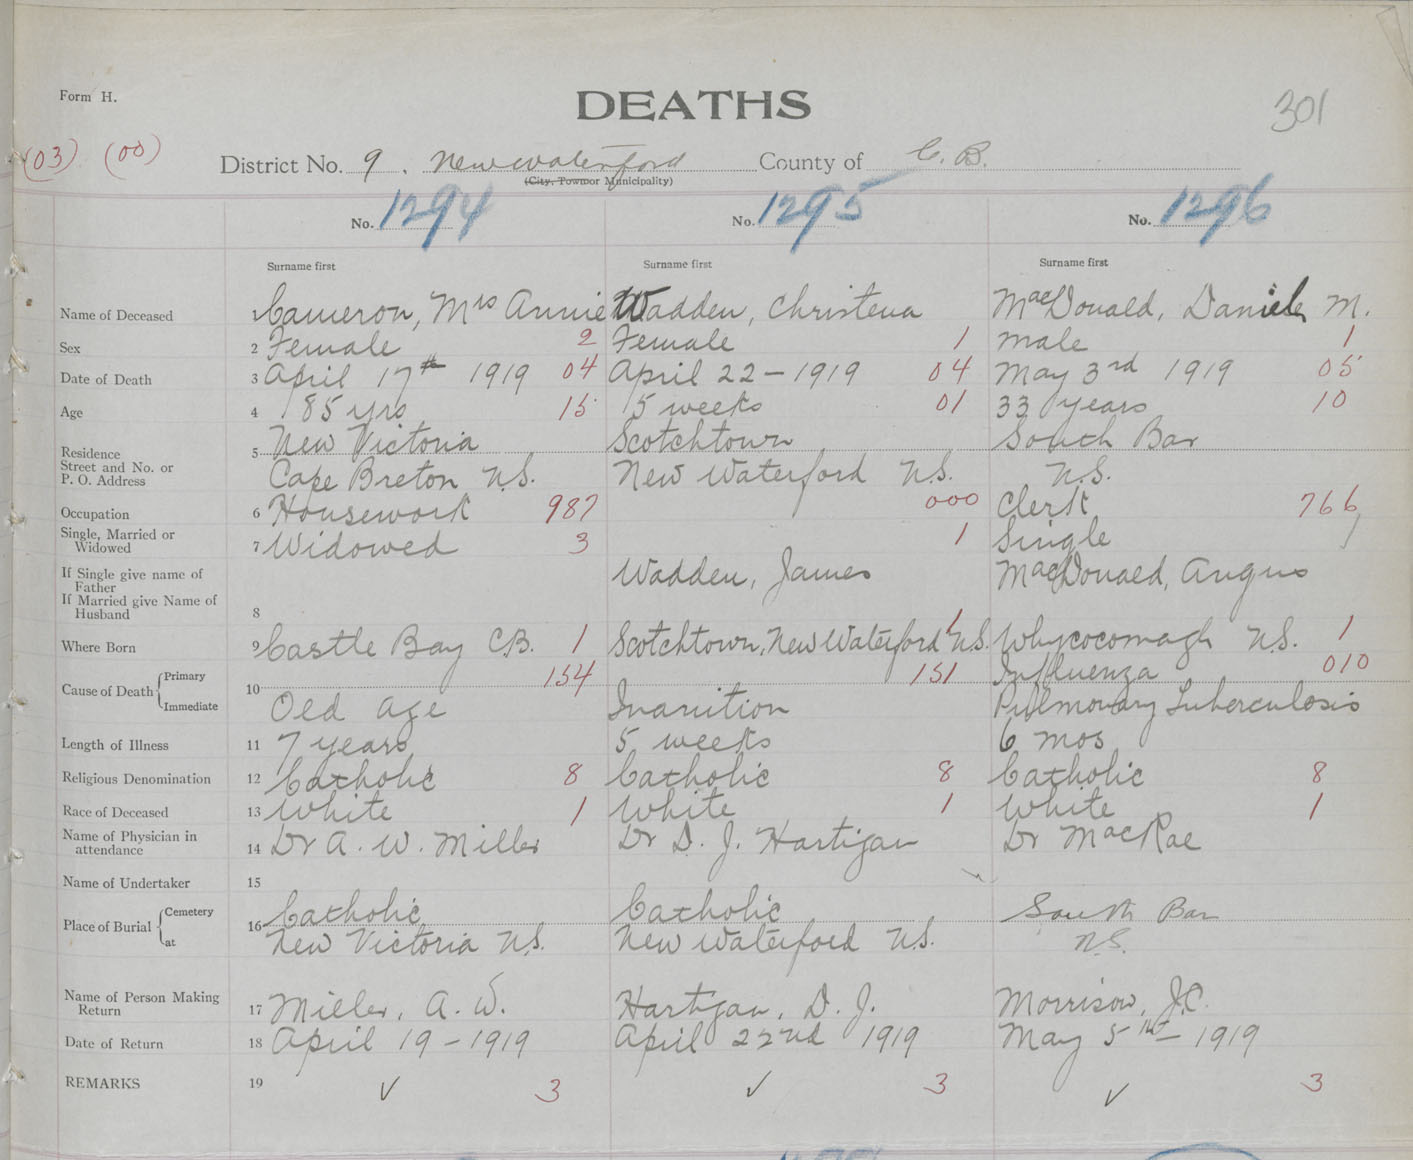 Form H.
DEATHS
301
(03) (00)
District No. 9. New Waterford County of C. B.
(City, Town or Municipality)
No. 1294 No. 1295 No. 1296
Surname first Surname first Surname first
Name of Deceased 1 Cameron, Mrs Annie Wadden, Christena MacDonald, Daniel M.
Sex 2 Female 2 Female 1 male 1
Date of Death 3 April 17th 1919 04 April 22 - 1919 04 May 3rd 1919 05
Age 4 85 yrs 15 5 weeks 01 33 years 10
Residence 5 New Victoria Scotchtown South Bar
Street and No. or
P. O. Address Cape Breton N.S. New Waterford N.S. N.S.
Occupation 6 Housework 987 000 Clerk 766
Single, Married or
Widowed 7 Widowed 3 1 Single 1
If Single give name of
Father Wadden, James MacDonald, Angus
If Married give Name of
Husband 8
Where Born 9 Castle Bay C.B. 1 Scotchtown, New Waterford N.S. 1 Whycocomagh N.S. 1
Cause of Death Primary 154 151 Influenza 010
Immediate 10 Old age Inanition Pulmonary Tuberculosis
Length of Illness 11 7 years 5 weeks 6 mos
Religious Denomination 12 Catholic 8 Catholic 8 Catholic 8
Race of Deceased 13 White 1 White 1 White 1
Name of Physician in
attendance 14 Dr A. W. Miller Dr D. J. Hartigan Dr MacRae
Name of Undertaker 15
Place of Burial Cemetery 16 Catholic Catholic South Bar
at New Victoria N.S. New Waterford N.S. N.S.
Name of Person Making
Return 17 Miller, A. W. Hartigan, D. J. Morrison, J.C.
Date of Return 18 April 19 - 1919 April 22nd 1919 May 5th - 1919
REMARKS 19 ✓ 3 ✓ 3 ✓ 3